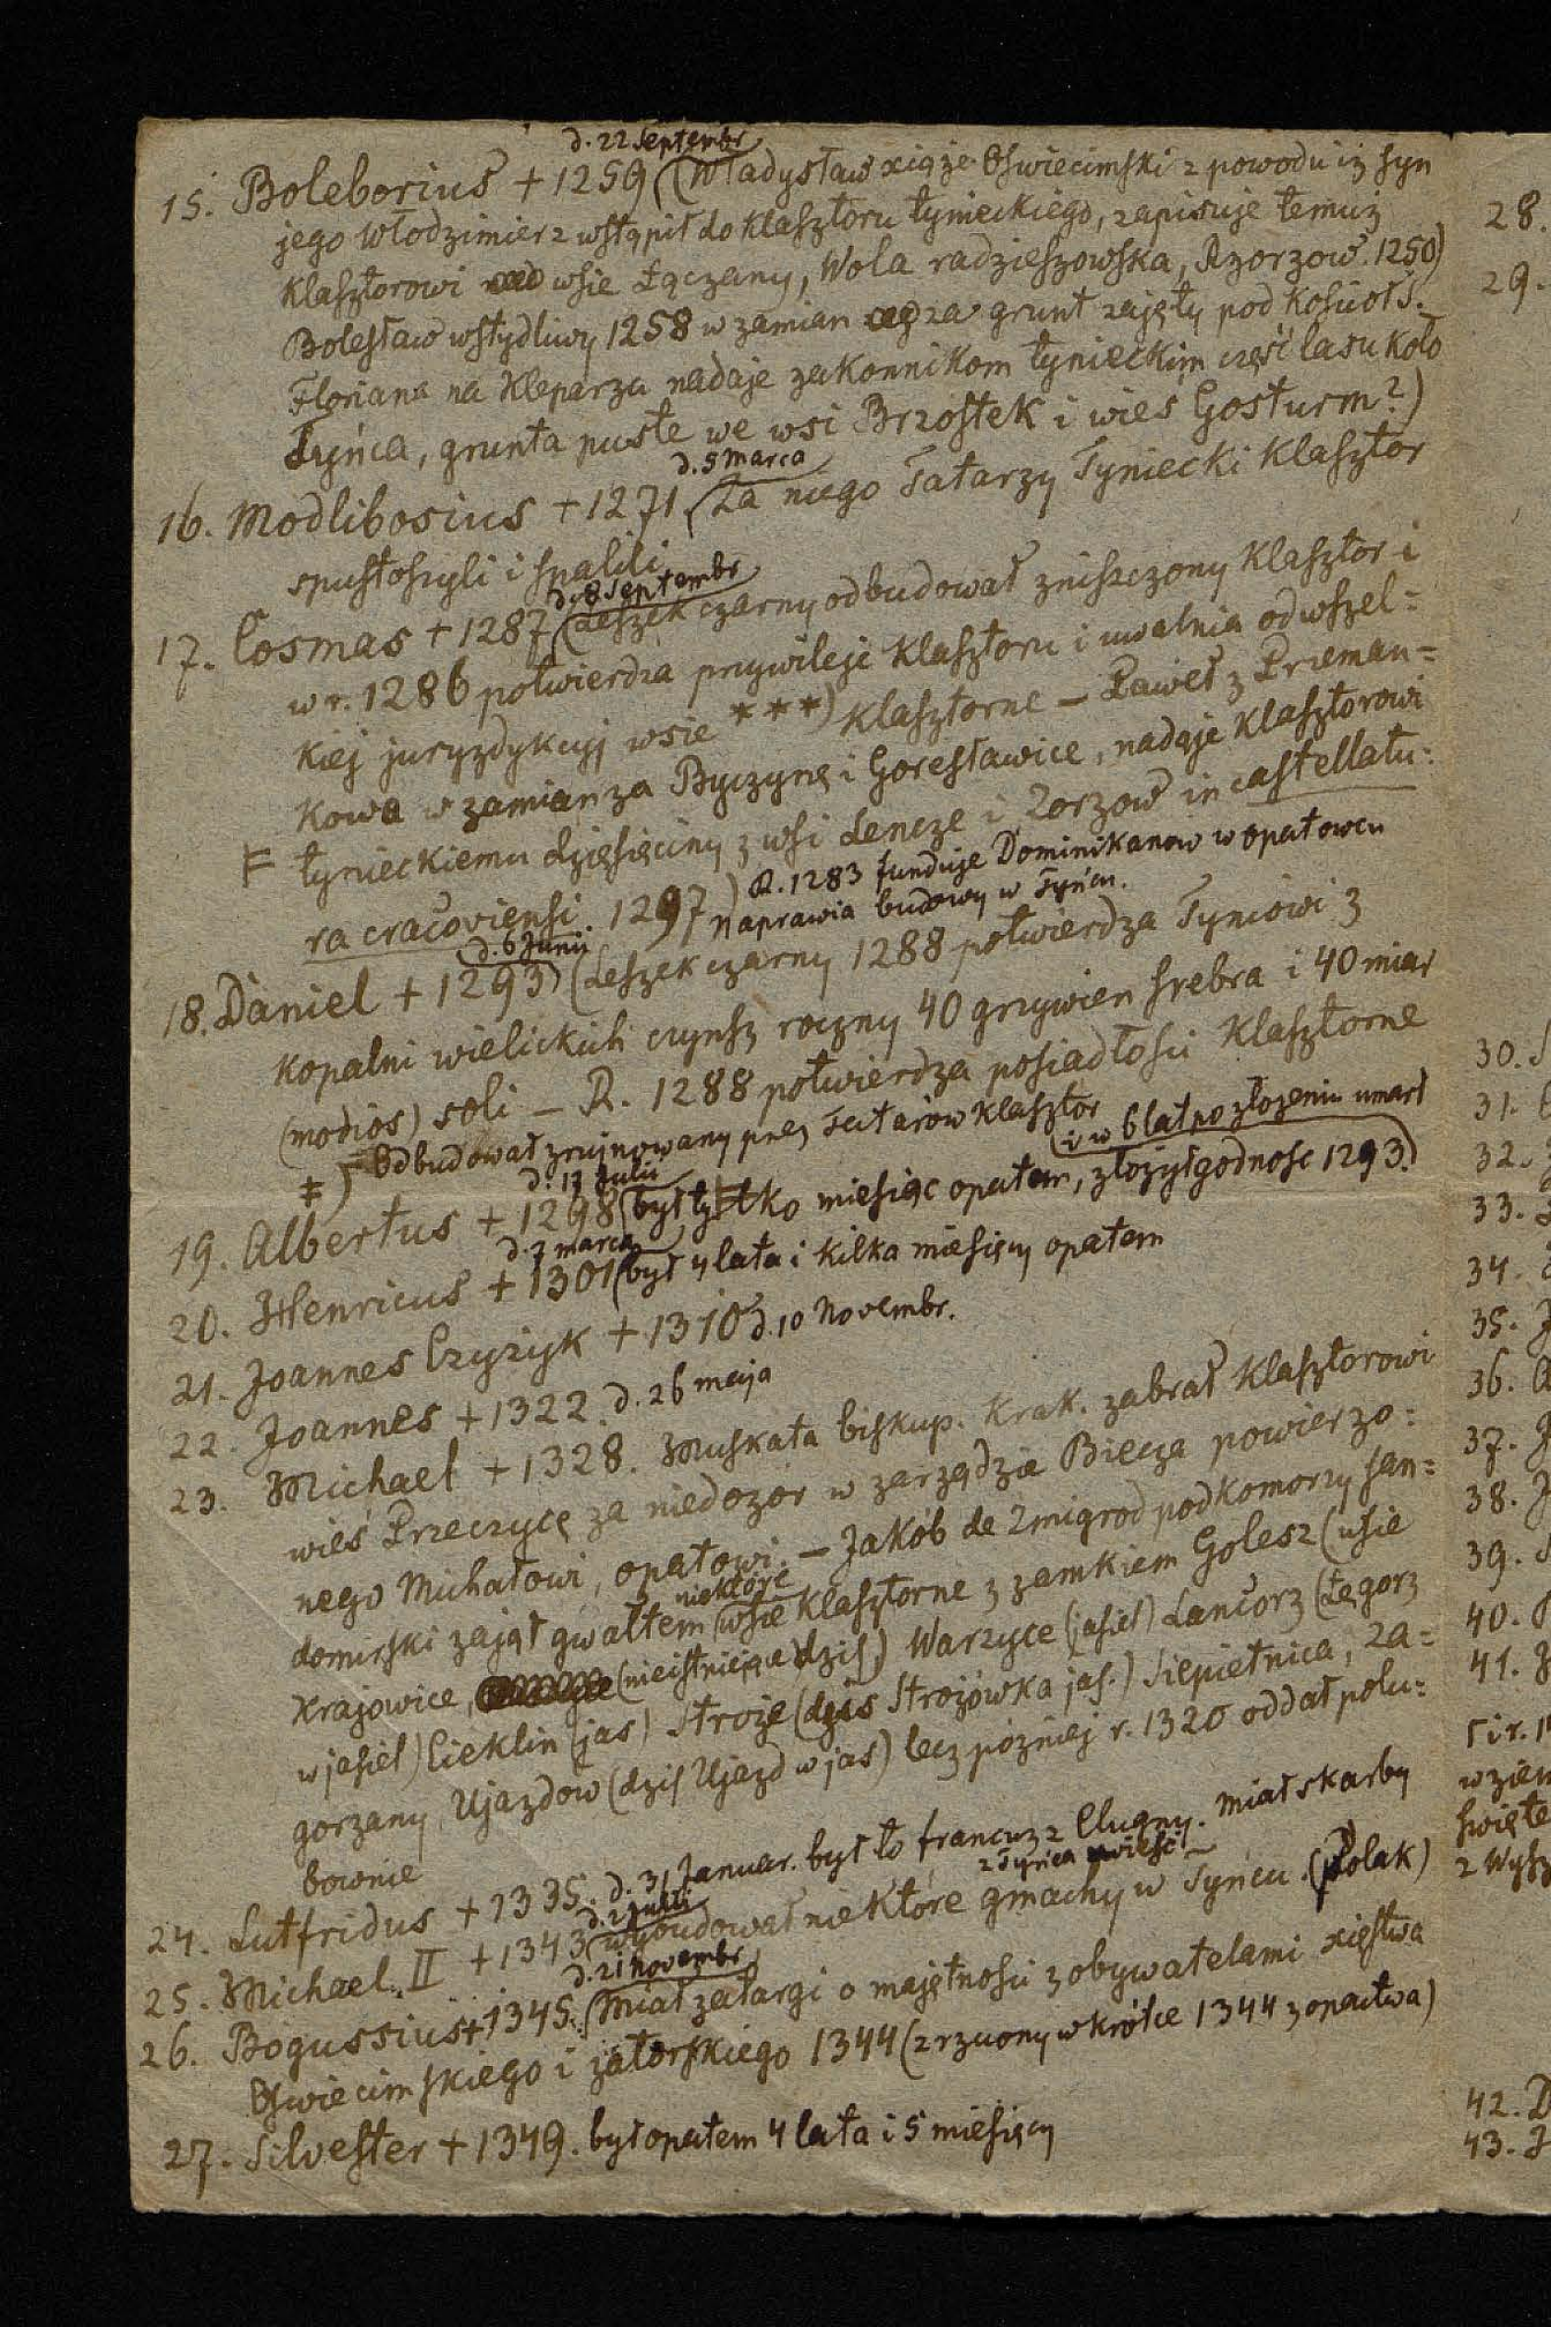 d. 22 Septembr
15. Boleborius + 1259 (Władysław xiąże Oświecimski z powodu iż syn
jego Włodzimierz wstąpił do klasztoru tynieckiego, zapisuje temuż
klasztorowi wsie Łączany, Wola radzieszowska, Rzorzow. 1250)
Bolesław wstydliwy 1258 w zamian za grunt zajęty pod kościół S.
Floriana na Kleparzu nadaje zakonnikom tynieckim część lasu koło
Tyńca, grunta puste we wsi Brzostek i wieś Gosturm?)
d. 5 marca
16. Modlibosius + 1271 (Za niego Tatarzy Tyniecki klasztor
spustoszyli i spalili
d. 8 Septembr
17. Cosmas + 1287 (Leszek czarny odbudował zniszczony klasztor i
w r. 1286 potwierdza przywileje klasztoru i uwalnia od wszel=
kiej juryzdykcyj wsie ***) klasztorne – Paweł z Przeman=
kowa w zamian za Byczynę i Goresławice, nadaje klasztorowi
F tynieckiemu dzięsięciny z wsi Lencze i Zorzow in castellatu=
ra cracoviensi. 1297) R. 1283 funduje Dominikanow w opatowcu
naprawia budowy w Tyńcu.
d. 6 Junii
18. Daniel + 1293) (Leszek czarny 1288 potwierdza Tyńcowi z
kopalni wielickich czynsz roczny 40 grzywien srebra i 40 miar
(modios) soli – R. 1288 potwierdza posiadłości klasztorne
‡) Odbudował zrujnowany przez Tatarów klasztor
(i w 6 lat po złożeniu umarł
d. 17 Julii
19. Albertus + 1298 (był tylko miesiąc opatem, złożył godnosc 1293.)
d. 7 marca
20. Henricus + 1301 (był 4 lata i kilka miesięcy opatem
21. Joannes Czyżyk + 1310 d. 10 Novembr.
22. Joannes + 1322. d. 26 maja
23. Michael + 1328. Muskata biskup. Krak. zabrał klasztorowi
wieś Przeczycę za niedozór w zarządzie Biecza powierzo=
nego Michałowi, opatowi. – Jakób de Zmigrod podkomorzy san=
niektóre
domirski zajął gwałtem wsie klasztorne z zamkiem Golesz (wsie
Krajowice, (nieistniejące dziś) Warzyce (jasieł) Lancorz (Łęgorz
w jasieł) Cieklin (jas) Stroże (dziś Strożówka jas.) Siepietnica, Za=
gorzany, Ujazdow (dziś Ujazd w jas) lecz pózniej r. 1320 oddał polu=
bownie
24. Lutfridus + 1335. d. 31 Januar. był to francuz z Clugny. miał skarby
z Tyńca uwieść
d. 2 Julii
25. Michael II + 1343 (wybudował niektóre gmachy w Tyńcu. (Polak)
d. 21 Novembr
26. Bogussius + 1345. (miał zatargi o majętności z obywatelami xięstwa
Oświecimskiego i zatorskiego 1344 (zrzucony wkrótce 1344 z opactwa)
27. Silvester + 1349. był opatem 4 lata i 5 miesięcy
28.
29.
30.
31.
32.
33.
34.
35.
36.
37.
38.
39.
40.
41.
42.
43.